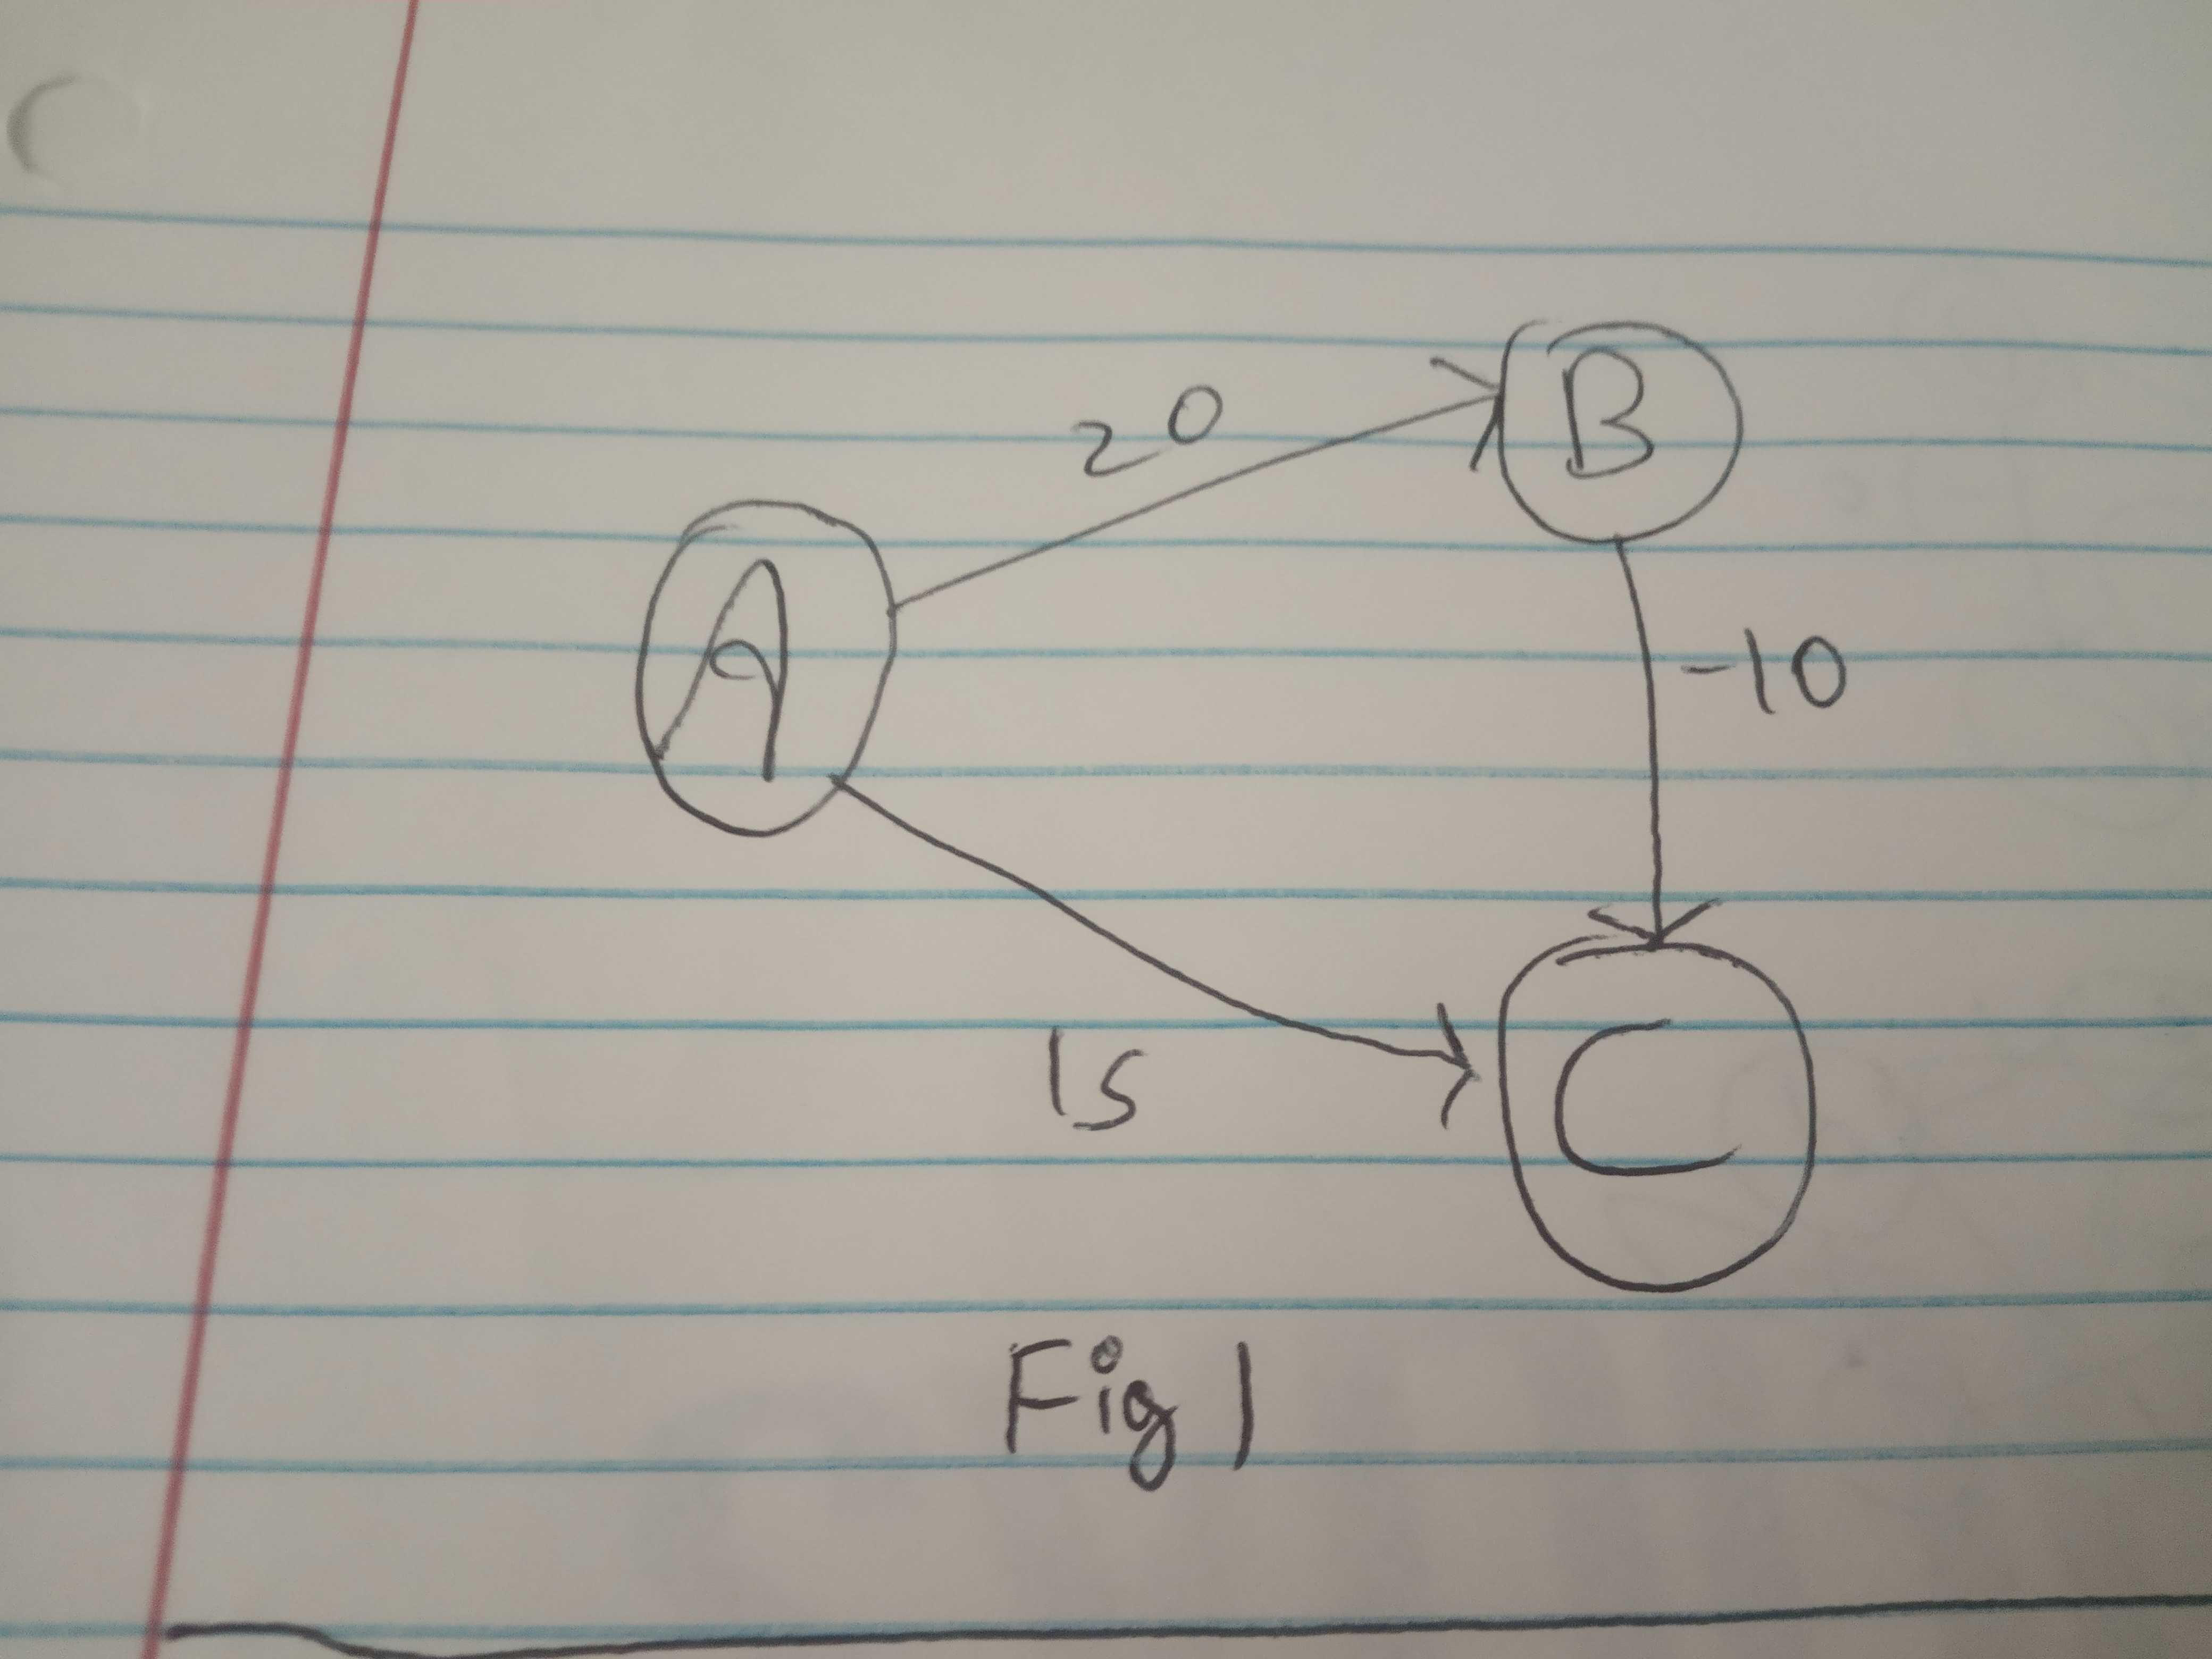 20
B
A
-10
15
C
Fig 1